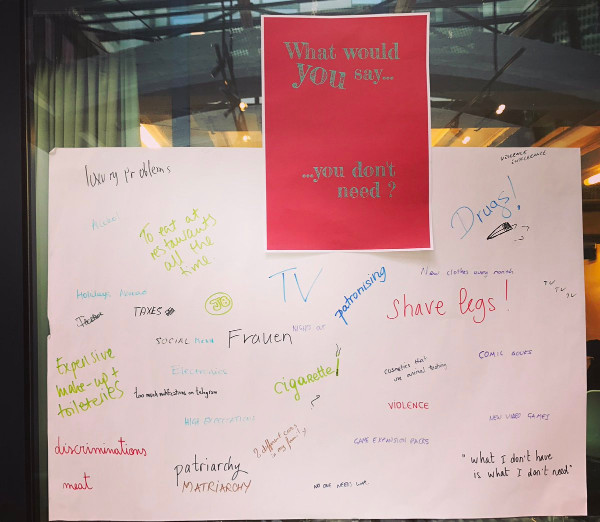 What would
you say...
...you don't
need ?
luxury problems
VIOLENCE
Drugs!
To eat at
restaurants
all the
time
TV
patronising
New clothes every month
Holidays
TAXES
shave legs!
TV
TV
TV
SOCIAL
Frauen
NIGHT
Expensive
make-up +
toileteries
Electronics
too much notifications on telegram
cigarette!
cosmetics that
use animal testing
COMIC BOOKS
HIGH EXPECTATIONS
VIOLENCE
NEW VIDEO GAMES
discriminations
2 different
in my
GAME EXPANSION PACKS
meat
patriarchy
MATRIARCHY
NO ONE NEEDS
"what I don't have
is what I don't need"